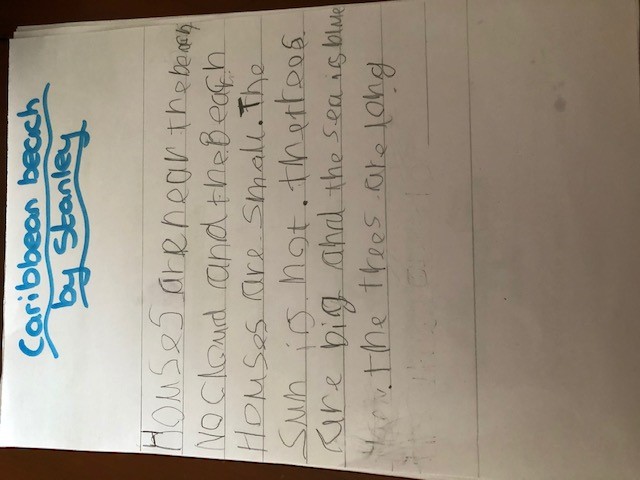 Caribbean beach
by Stanley
Houses are near the beach
No cloud and the Beach
Houses are small. The
Sun is hot. the trees
are big and the sea is blue
. the trees are long